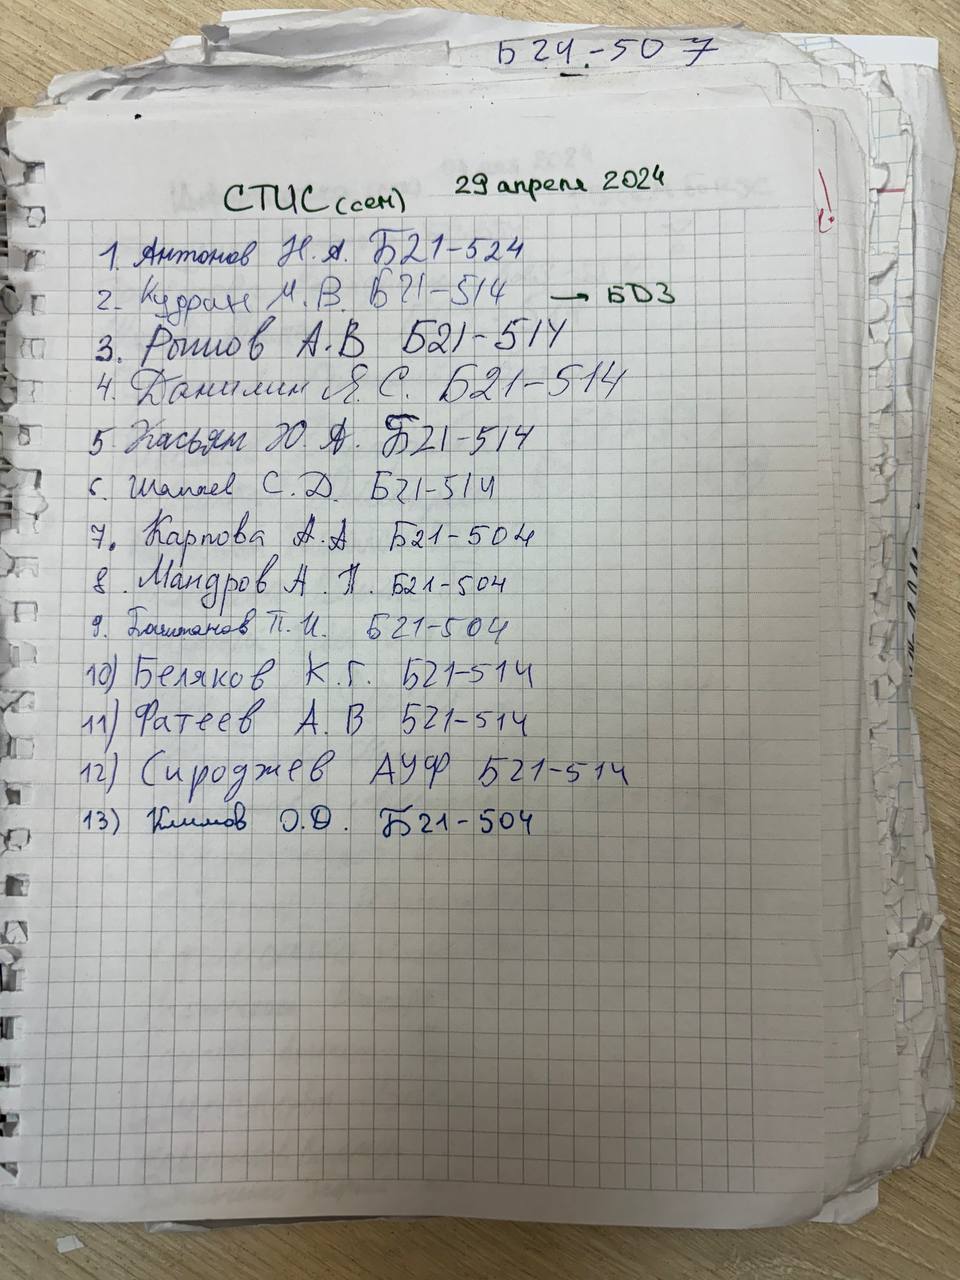 Б24-507
СТИС (сем) 29 апреля 2024
1. Антонов Н. А. Б21-524
2. Кудрин М. В. Б21-514 → БДЗ
3. А. В Б21-514
4. Данилин Я. С. Б21-514
5. Касьян Ю. А. Б21-514
6. С. Д. Б21-514
7. Карпова А. А Б21-504
8. Мандров А. П. Б21-504
9. П. И. Б21-504
10) Беляков К. Г. Б21-514
11) Фатеев А. В Б21-514
12) Сироджев АУФ Б21-514
13) Климов О.Д. Б21-504